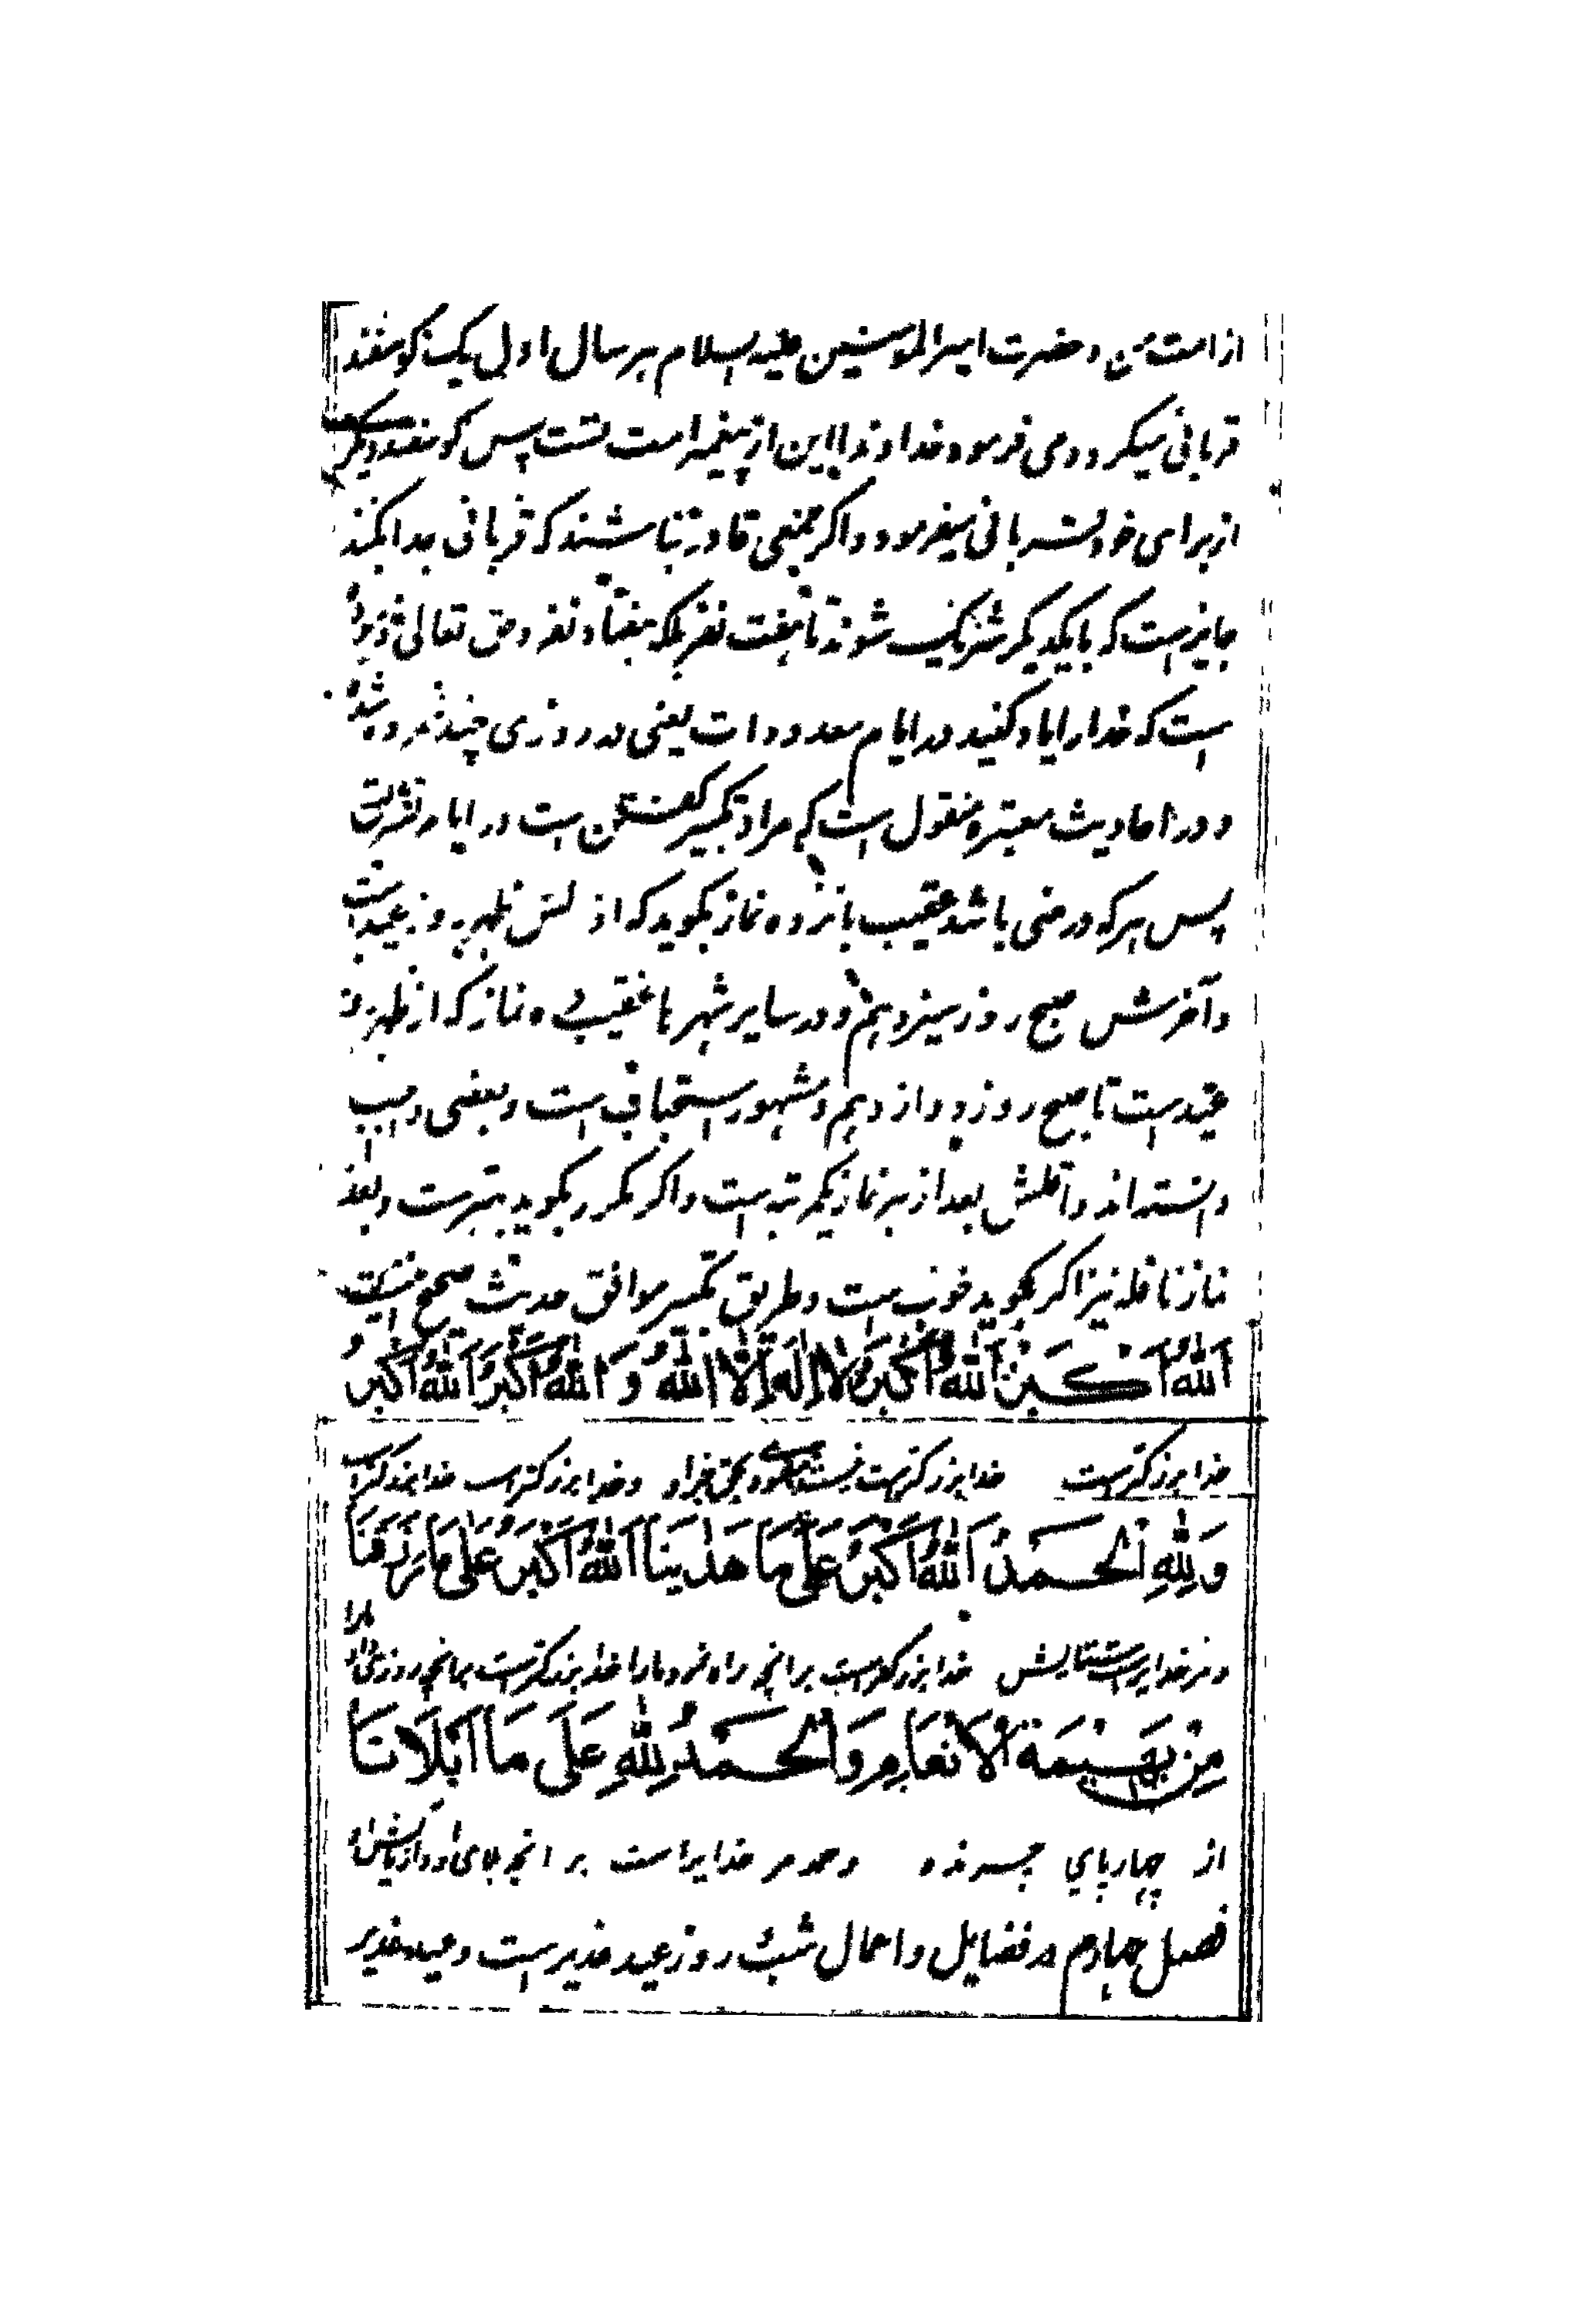 از امت من و حضرت امیرالمؤمنین علیه السلام هر سال اول یک گوسفند
قربانی میکرد و می فرمود خداوندا این از پیغمبر امت تست پس گوسفند دیگر
از برای خود قربانی میفرمود و اگر جمعی قادر نباشند که قربانی جدا بکنند
جایز است که با یکدیگر شریک شوند تا هفت نفر بلکه هفتاد نفر و حق تعالی فرموده
است که خدا را یاد کنید در ایام معدودات یعنی در روزی چند شمرده شده
و در احادیث معتبره منقول است که مراد تکبیر گفتن است در ایام تشریق
پس هر که در منی باشد عقیب پانزده نماز بگوید که اولش ظهر روز عید است
و آخرش صبح روز سیزدهم و در سایر شهرها عقیب ده نماز که از ظهر روز
عید است تا صبح روز دوازدهم و مشهور استحبابی است و بعضی واجب
دانسته اند و اقلش بعد از هر نماز یکمرتبه است و اگر مکرر بگوید بهتر است و بعد
نماز نافله نیز اگر بگوید خوب است و طریق تکبیر موافق حدیث صحیح اینست
اَللّٰهُ اَکْبَرُ اَللّٰهُ اَکْبَرُ لَا اِلٰهَ اِلَّا اللّٰهُ وَ اللّٰهُ اَکْبَرُ اَللّٰهُ اَکْبَرُ
خدا بزرگتر است خدا بزرگتر است نیست معبودی بحق بجز او و خدا بزرگتر است خدا بزرگتر است
وَلِلّٰهِ الْحَمْدُ اَللّٰهُ اَکْبَرُ عَلٰی مَا هَدٰینَا اَللّٰهُ اَکْبَرُ عَلٰی مَا رَزَقَنَا
و مر خدایراست ستایش خدا بزرگتر است بر انچه راه نمود ما را خدا بزرگتر است بر انچه روزی داد ما را
مِنْ بَهِیْمَةِ الْاَنْعَامِ وَ الْحَمْدُ لِلّٰهِ عَلٰی مَا اَبْلَانَا
از چهارپای چرنده و حمد مر خدایراست بر انچه
فصل چهارم در فضایل و اعمال شب و روز عید غدیر است و عید غدیر